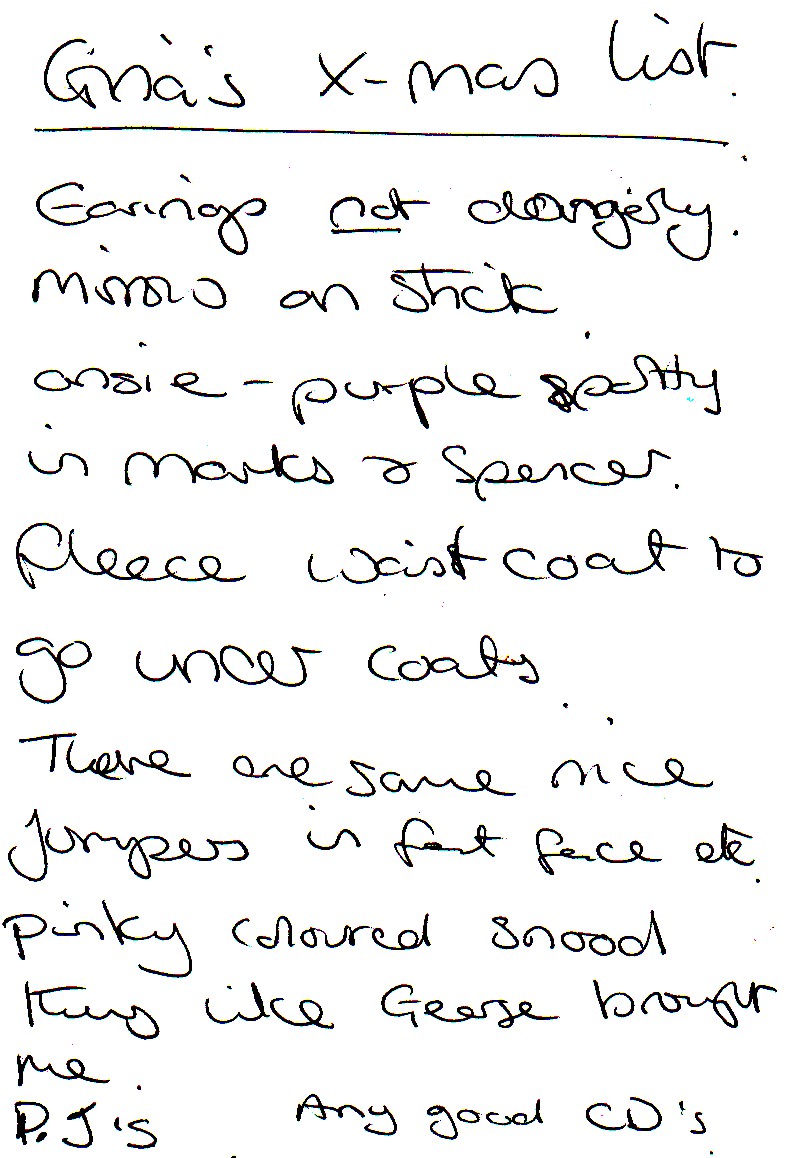 Gina's X-mas list.
Earings not dangerly.
mirror on stick
onsie - purple spotty
in Marks & Spencer.
fleece waistcoat to
go under coats
There are some nice
Jumpers in fat face etc
pinky coloured snood
thing like George brought
me.
P.J's Any good CD's